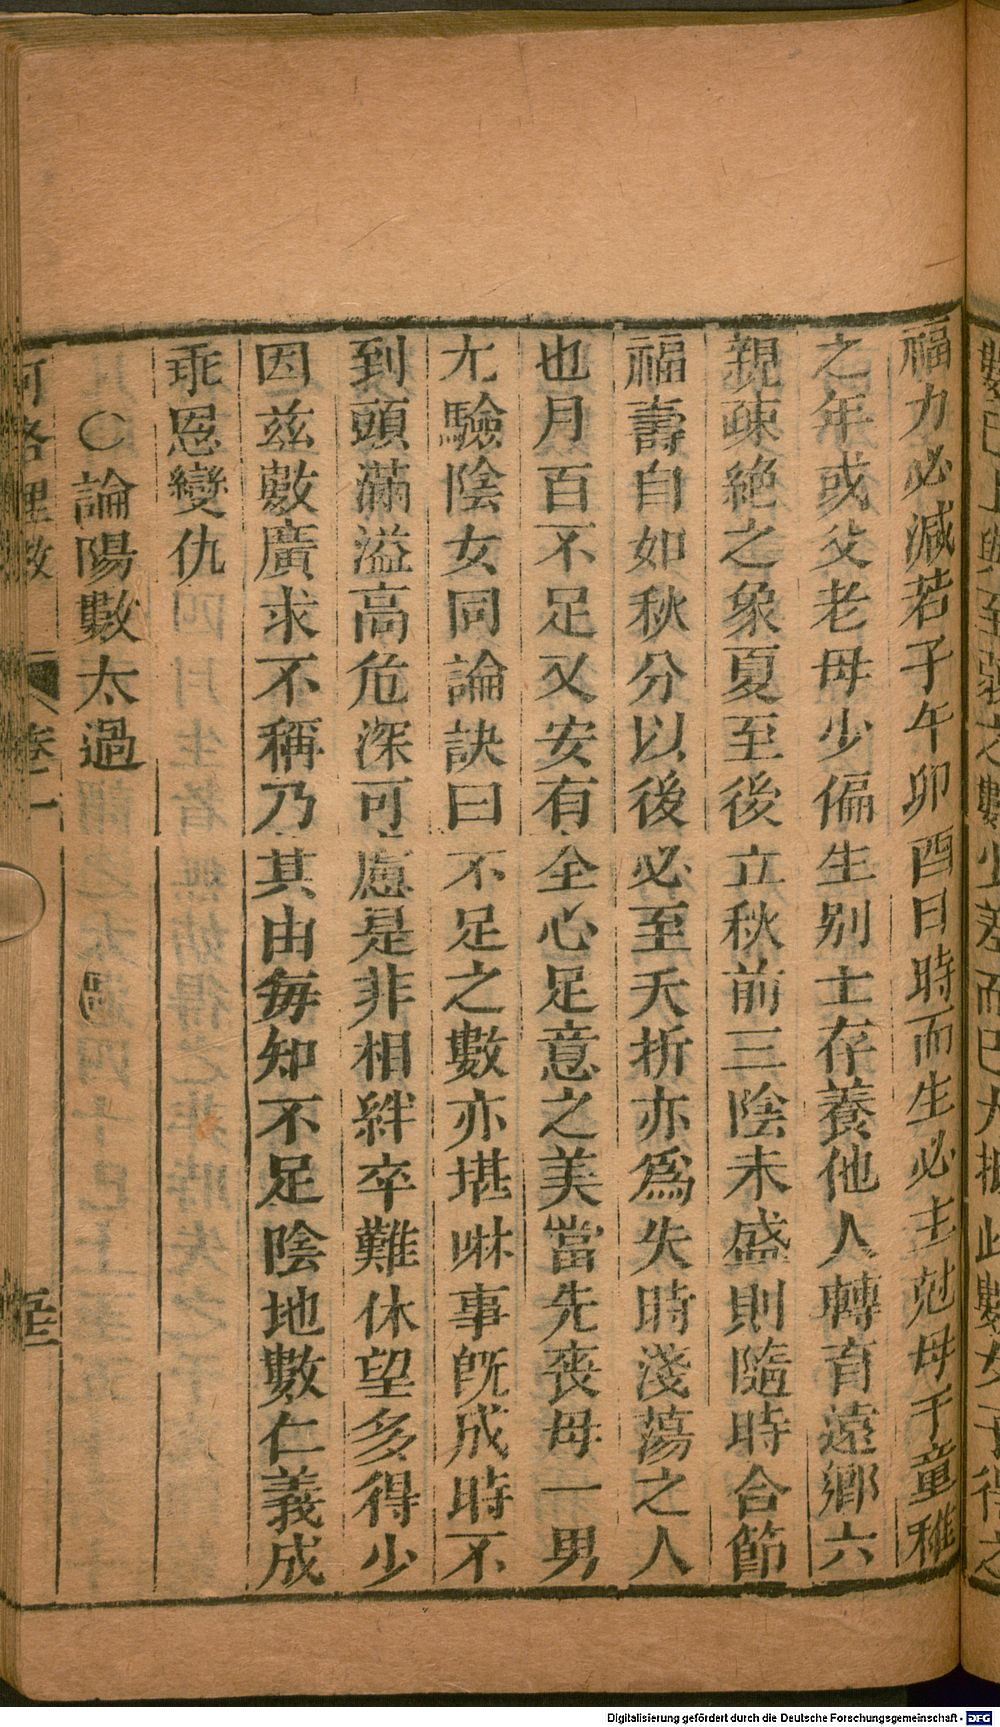 福力必減若子午卯酉日時而生必主尅母于童稚
之年或父老母少偏生别士存養他人轉育遠鄉六
親疎絶之象夏至後立秋前三陰未盛則隨時合節
福壽自如秋分以後必至夭折亦爲失時淺蕩之人
也月百不足又安有全心足意之美當先喪母一男
尢驗陰女同論訣曰不足之數亦堪啉事旣成時不
到頭滿溢高危深可慮是非相絆卒難休望多得少
因兹數廣求不稱乃其由毎知不足陰地數仁義成
乖恩變仇
○論陽數太過
河洛理數 卷一
Digitalisierung gefördert durch die Deutsche Forschungsgemeinschaft - DFG